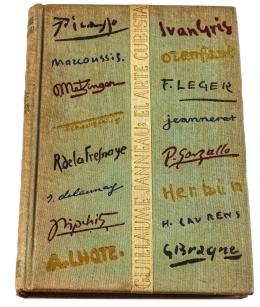 Picasso
Marcoussis.
Metzinger
R de la Fresnaye
r. delaunay
Lipchitz
A. LHOTE.
GUILLAUME JANNEAU: EL ARTE CUBISTA
Juan Gris
ozenfant
F. LEGER
jeanneret
P. Gargallo
Herbin
H. LAURENS
G Braque